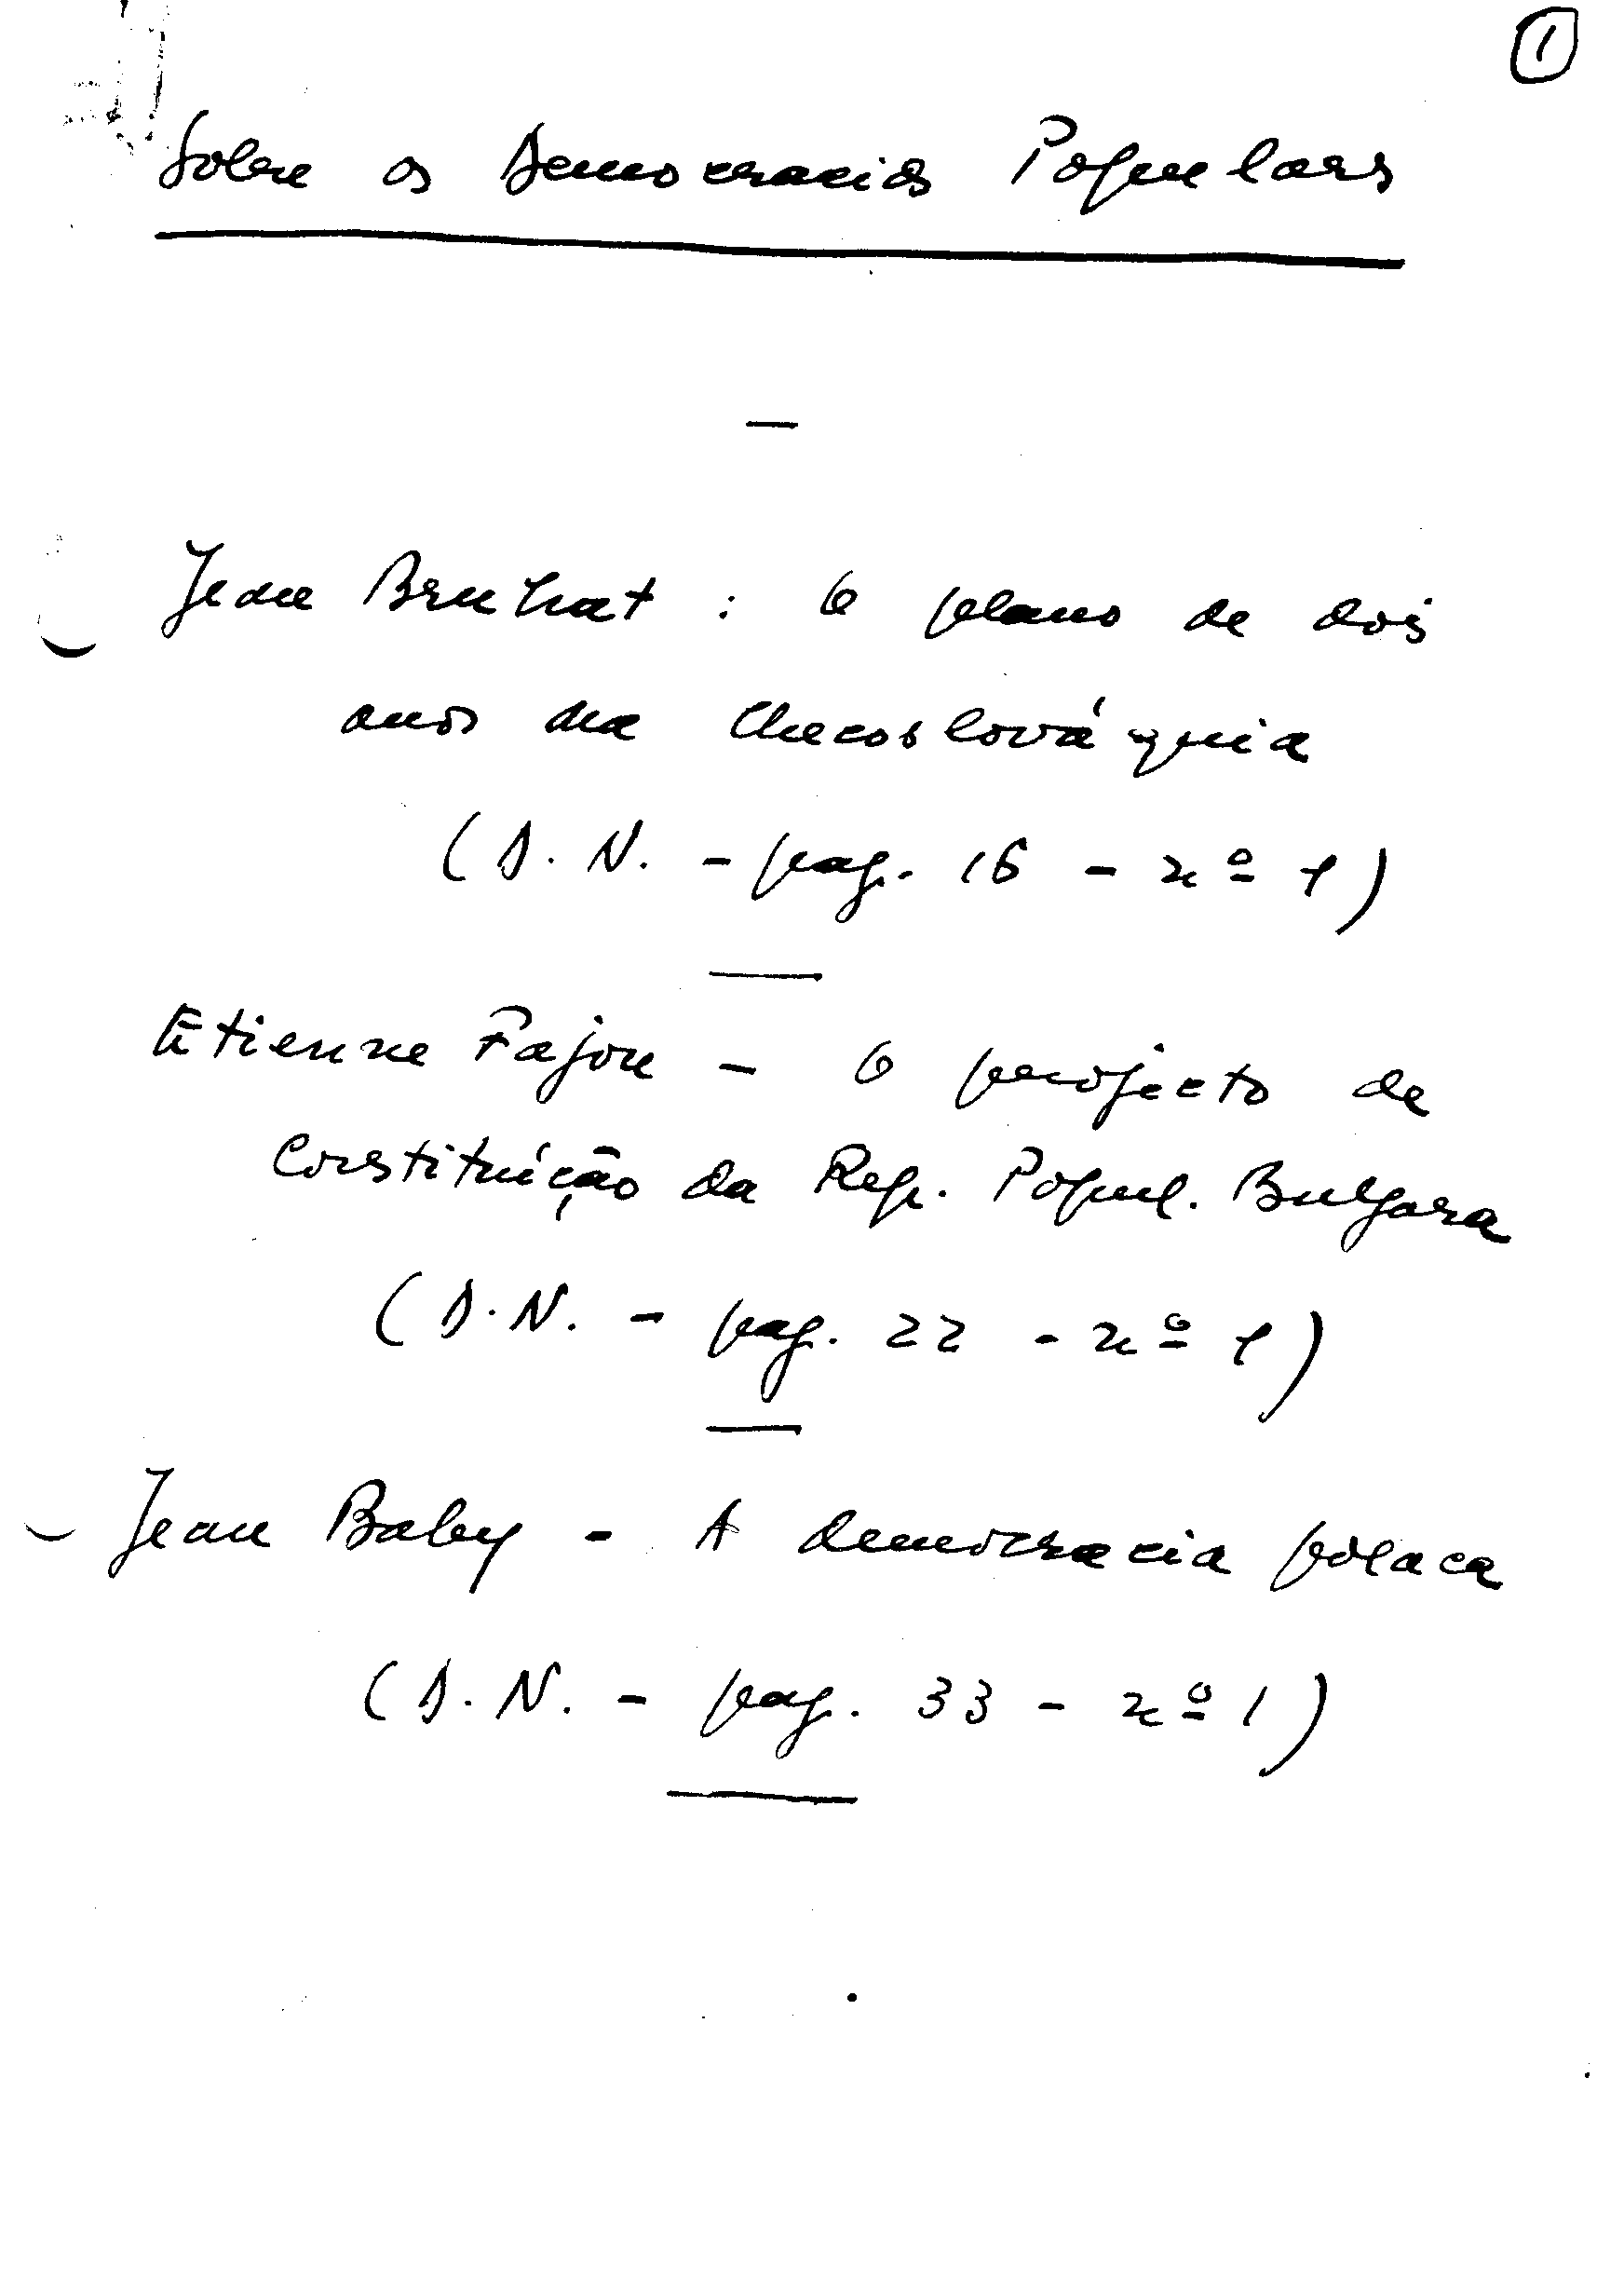 1
Sobre as Democracias Populares
Jean Bruhat : O plano de dois
anos na Checoslováquia
(D. N. - pag. 16 - nº 1)
Etienne Fajon - O projecto de
Constituição da Rep. Popul. Bulgara
(D. N. - pag. 22 - nº 1)
Jean Baby - A democracia polaca
(D. N. - pag. 33 - nº 1)